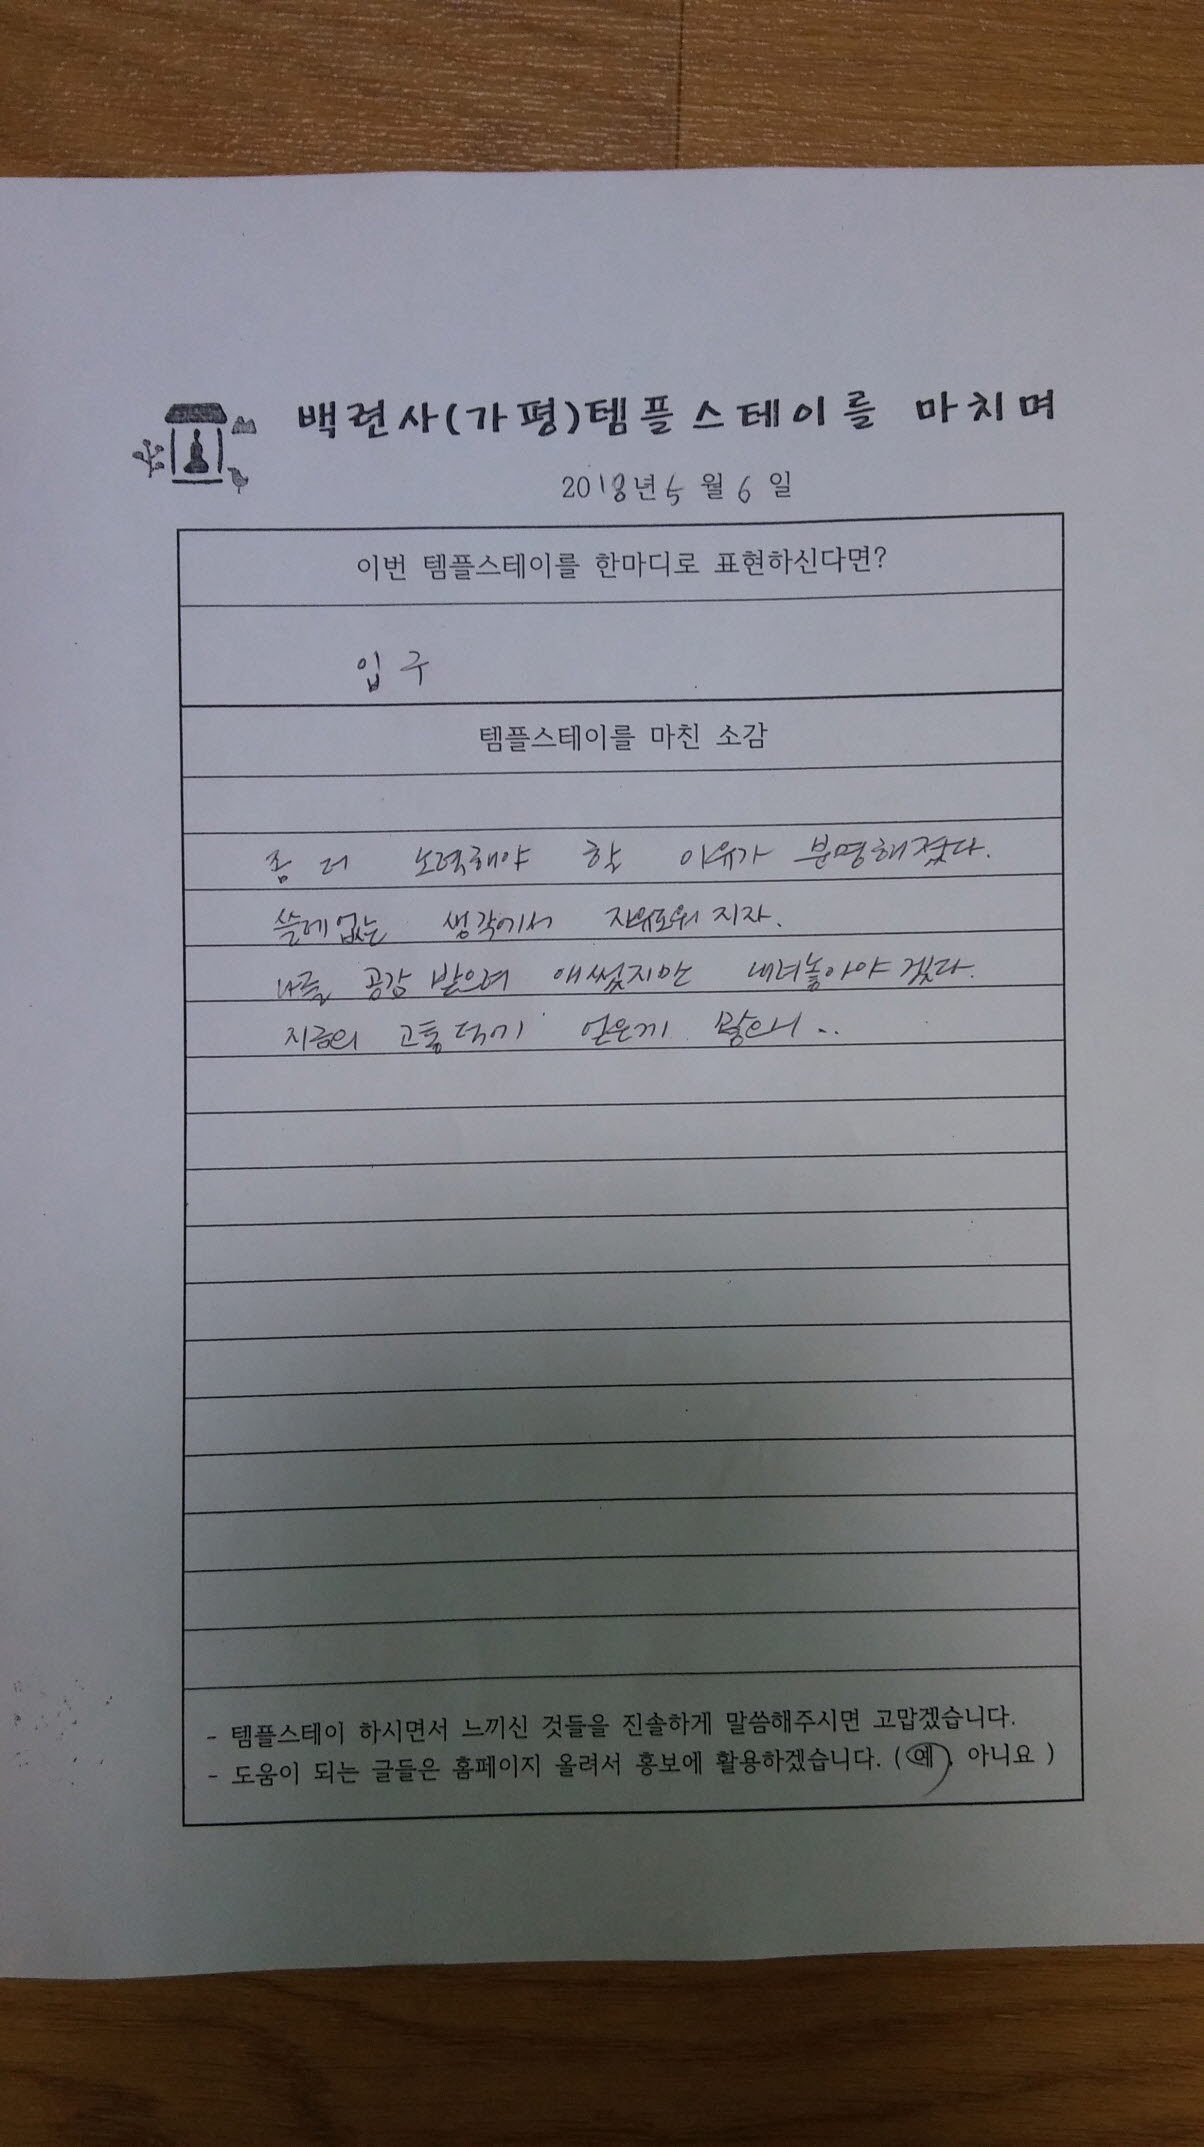 백련사(가평)템플스테이를 마치며
2018년 5월 6일
이번 템플스테이를 한마디로 표현하신다면?
입구
템플스테이를 마친 소감
좀 더 노력해야 할 이유가 분명해졌다.
쓸데없는 생각에서 자유로워지자.
나를 공감 받으려 애썼지만 내려놓아야겠다.
지금의 고통 덕에 얻은게 많으니..
- 템플스테이 하시면서 느끼신 것들을 진솔하게 말씀해주시면 고맙겠습니다.
- 도움이 되는 글들은 홈페이지 올려서 홍보에 활용하겠습니다. (예, 아니요 )